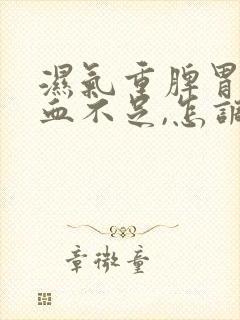 濕氣重脾胃
血不足,怎調
章微童